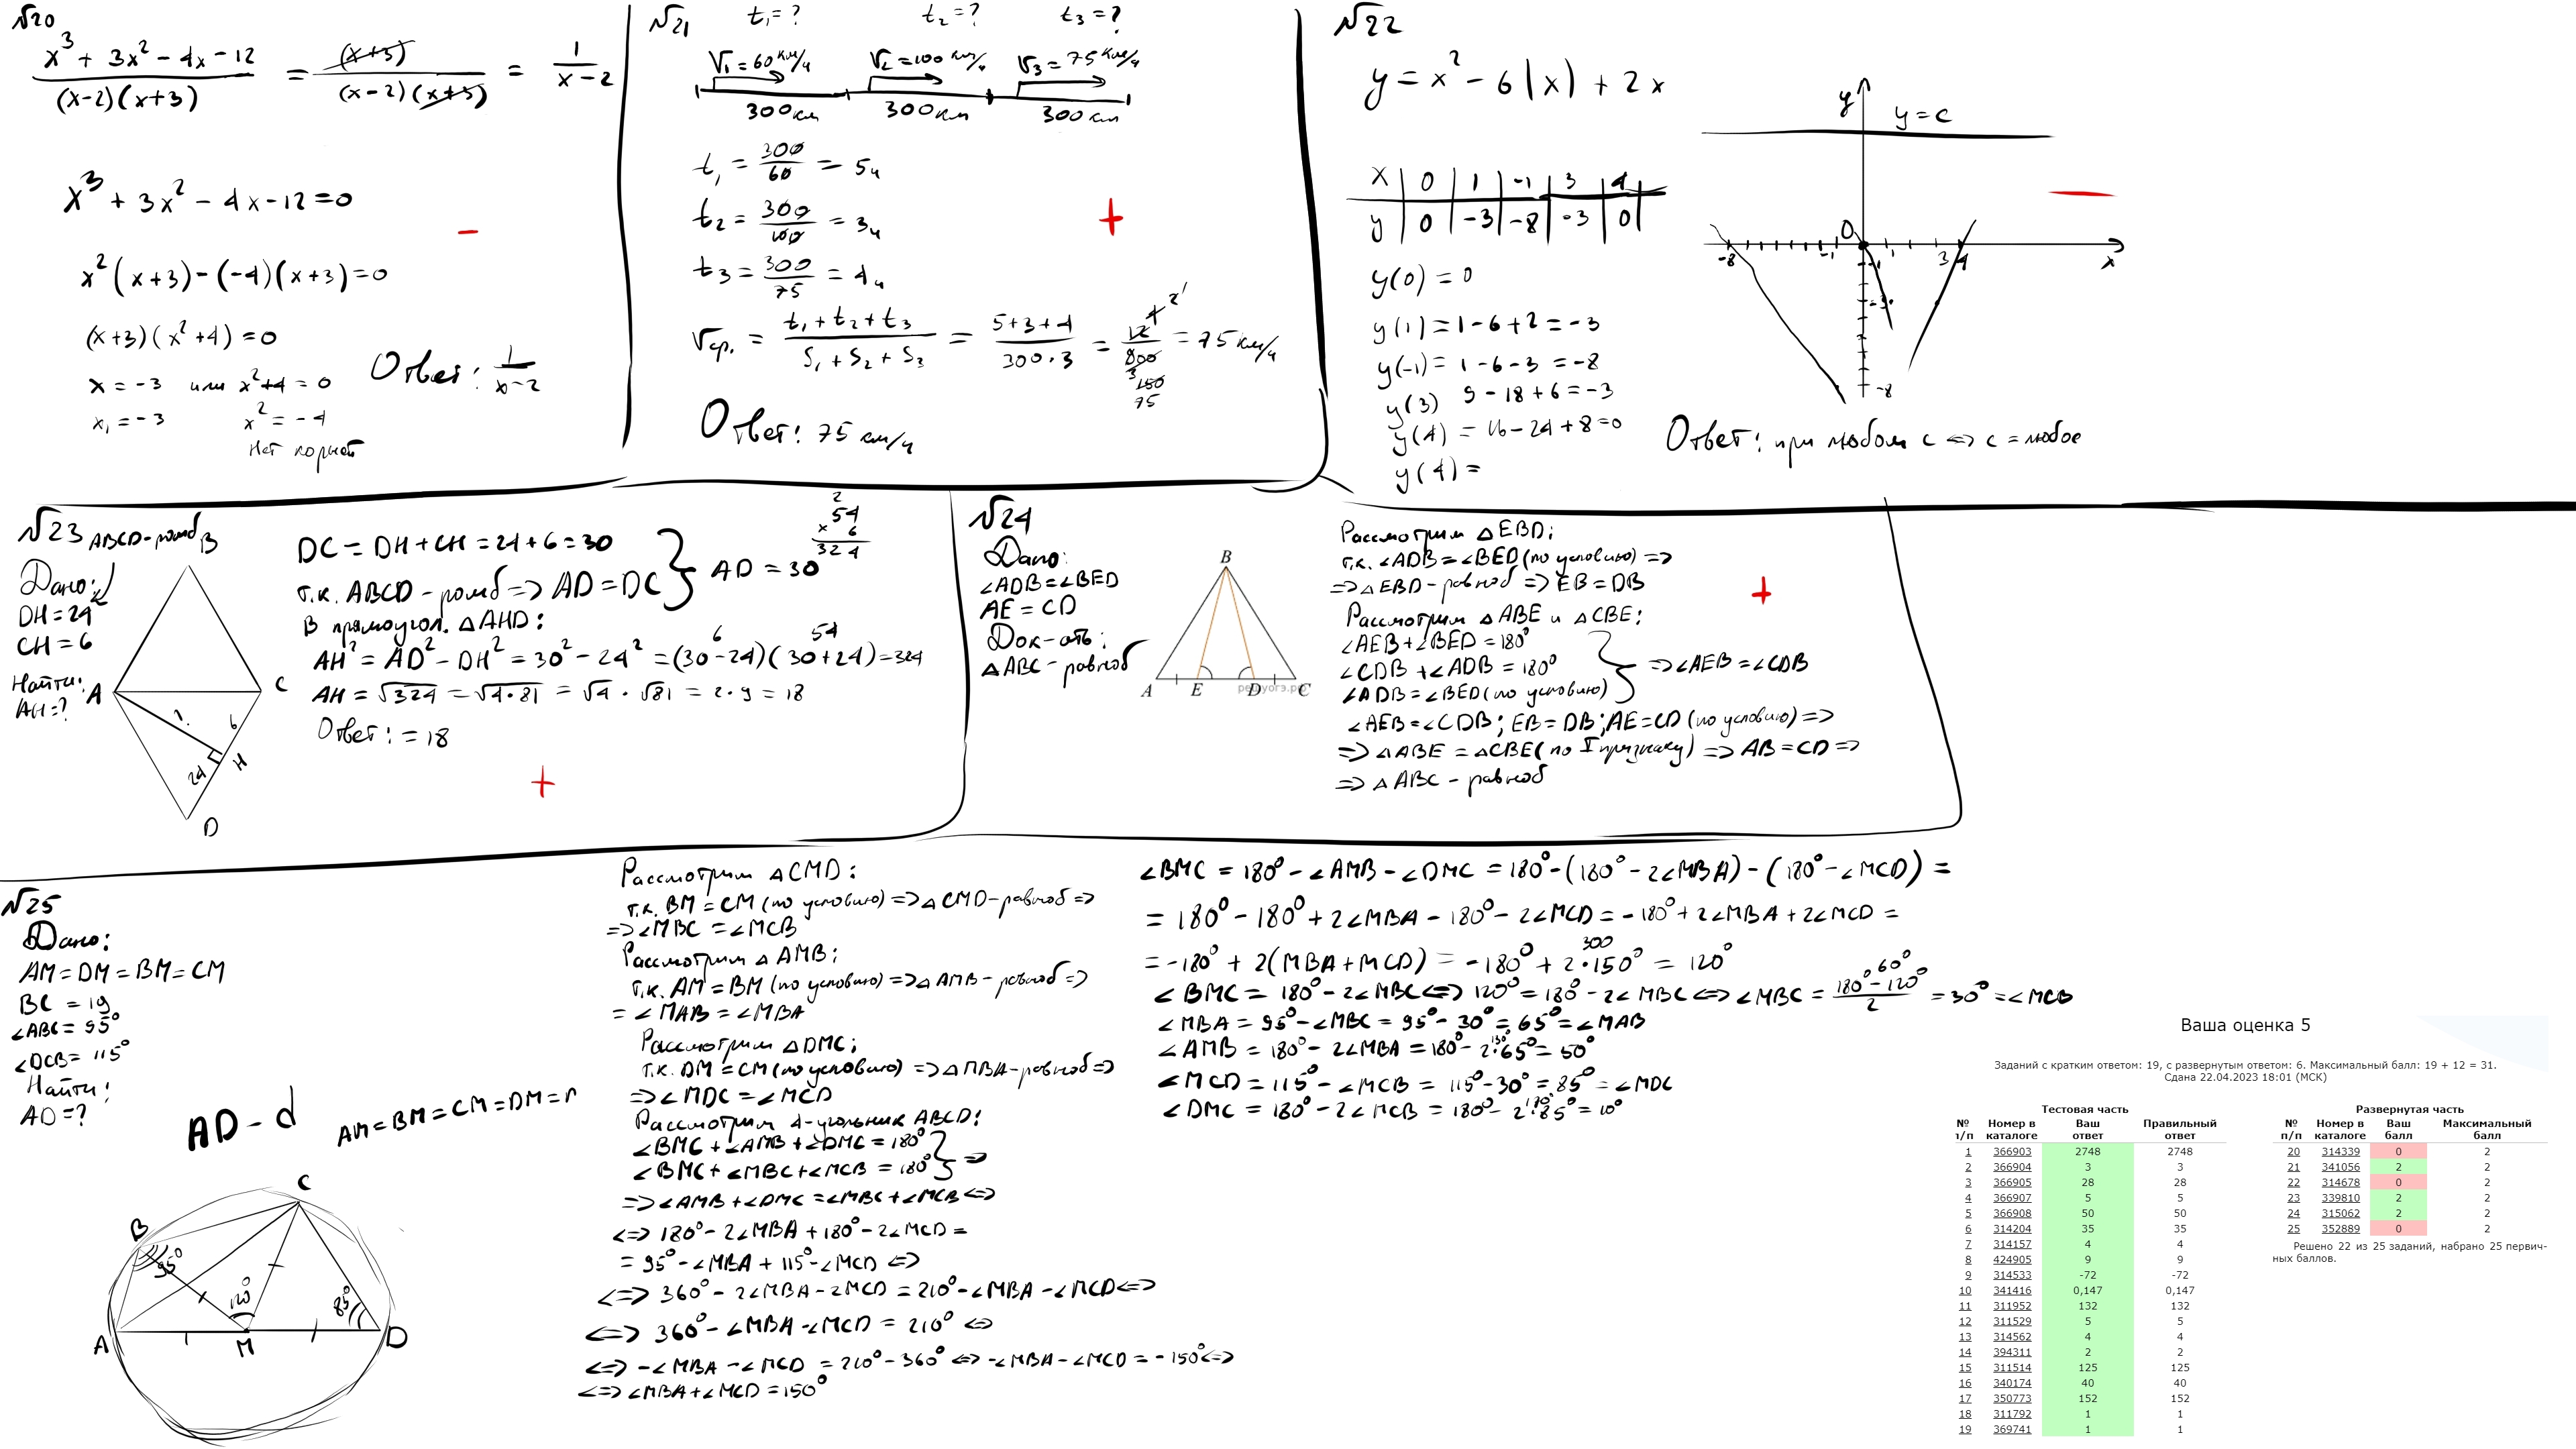 №20
x³ + 3x² - 4x - 12 / (x-2)(x+3) = (x+3) / (x-2)(x+3) = 1 / x-2
x³ + 3x² - 4x - 12 = 0
x²(x+3) - (-4)(x+3) = 0
(x+3)(x²+4) = 0
x = -3 или x²+4 = 0
x₁ = -3 x² = -4
Нет корней
Ответ: 1 / x-2
№21
t₁ = ? t₂ = ? t₃ = ?
V₁ = 60 км/ч V₂ = 100 км/ч V₃ = 75 км/ч
300 км 300 км 300 км
t₁ = 300/60 = 5ч
t₂ = 300/100 = 3ч
t₃ = 300/75 = 4ч
Vср. = t₁ + t₂ + t₃ / S₁ + S₂ + S₃ = 5+3+4 / 300·3 = 12 / 900 = 75 км/ч
Ответ: 75 км/ч
№22
y = x² - 6|x| + 2x
x 0 1 -1 3 4
y 0 -3 -8 -3 0
y(0) = 0
y(1) = 1 - 6 + 2 = -3
y(-1) = 1 - 6 - 3 = -8
y(3) 9 - 18 + 6 = -3
y(4) = 16 - 24 + 8 = 0
y(4) =
y
y = c
0
-8 -1 3 4 x
-1
-3
-8
Ответ: при любом c <=> c = любое
№23 ABCD-ромб
Дано:
DH = 24
CH = 6
Найти:
AH = ?
B
A C
6
H
24
D
DC = DH + CH = 24 + 6 = 30
т.к. ABCD - ромб => AD = DC
AD = 30
2
54
× 6
324
В прямоугол. △AHD:
6 54
AH² = AD² - DH² = 30² - 24² = (30-24)(30+24) = 324
AH = √324 = √4·81 = √4 · √81 = 2·9 = 18
Ответ: = 18
№24
Дано:
∠ADB = ∠BED
AE = CD
Док-ать:
△ABC - равноб
B
A E D C
Рассмотрим △EBD:
т.к. ∠ADB = ∠BED (по условию) =>
=> △EBD - равноб => EB = DB
Рассмотрим △ABE и △CBE:
∠AEB + ∠BED = 180°
∠CDB + ∠ADB = 180° => ∠AEB = ∠CDB
∠ADB = ∠BED (по условию)
∠AEB = ∠CDB; EB = DB; AE = CD (по условию) =>
=> △ABE = △CBE (по I признаку) => AB = CD =>
=> △ABC - равноб
№25
Дано:
AM = DM = BM = CM
BC = 19
∠ABC = 95°
∠DCB = 115°
Найти:
AD = ?
AD - d AM = BM = CM = DM = r
C
B
95°
120°
85°
A M D
Рассмотрим △CMD:
т.к. BM = CM (по условию) => △CMD - равноб =>
=> ∠MBC = ∠MCB
Рассмотрим △AMB:
т.к. AM = BM (по условию) => △AMB - равноб =>
= ∠MAB = ∠MBA
Рассмотрим △DMC:
т.к. DM = CM (по условию) => △ПВА - равноб =>
=> ∠MDC = ∠MCD
Рассмотрим 4-угольник ABCD:
∠BMC + ∠AMB + ∠DMC = 180°
∠BMC + ∠MBC + ∠MCB = 180° =>
=> ∠AMB + ∠DMC = ∠MBC + ∠MCB <=>
<=> 180° - 2∠MBA + 180° - 2∠MCD =
= 95° - ∠MBA + 115° - ∠MCD <=>
<=> 360° - 2∠MBA - 2∠MCD = 210° - ∠MBA - ∠MCD <=>
<=> 360° - ∠MBA - ∠MCD = 210° <=>
<=> -∠MBA - ∠MCD = 210° - 360° <=> -∠MBA - ∠MCD = -150° <=>
<=> ∠MBA + ∠MCD = 150°
∠BMC = 180° - ∠AMB - ∠DMC = 180° - (180° - 2∠MBA) - (180° - ∠MCD) =
= 180° - 180° + 2∠MBA - 180° - 2∠MCD = -180° + 2∠MBA + 2∠MCD =
300
= -180° + 2(MBA + MCD) = -180° + 2·150° = 120°
∠BMC = 180° - 2∠MBC <=> 120° = 180° - 2∠MBC <=> ∠MBC = 180° - 120° / 2 = 30° = ∠MCB
60°
∠MBA = 95° - ∠MBC = 95° - 30° = 65° = ∠MAB
∠AMB = 180° - 2∠MBA = 180° - 2·65° = 50°
∠MCD = 115° - ∠MCB = 115° - 30° = 85° = ∠MDC
∠DMC = 180° - 2∠MCB = 180° - 2·85° = 10°
Ваша оценка 5
Заданий с кратким ответом: 19, с развернутым ответом: 6. Максимальный балл: 19 + 12 = 31.
Сдана 22.04.2023 18:01 (МСК)
Тестовая часть
№ п/п Номер в каталоге Ваш ответ Правильный ответ
1 366903 2748 2748
2 366904 3 3
3 366905 28 28
4 366907 5 5
5 366908 50 50
6 314204 35 35
7 314157 4 4
8 424905 9 9
9 314533 -72 -72
10 341416 0,147 0,147
11 311952 132 132
12 311529 5 5
13 314562 4 4
14 394311 2 2
15 311514 125 125
16 340174 40 40
17 350773 152 152
18 311792 1 1
19 369741 1 1
Развернутая часть
№ п/п Номер в каталоге Ваш балл Максимальный балл
20 314339 0 2
21 341056 2 2
22 314678 0 2
23 339810 2 2
24 315062 2 2
25 352889 0 2
Решено 22 из 25 заданий, набрано 25 первич-
ных баллов.